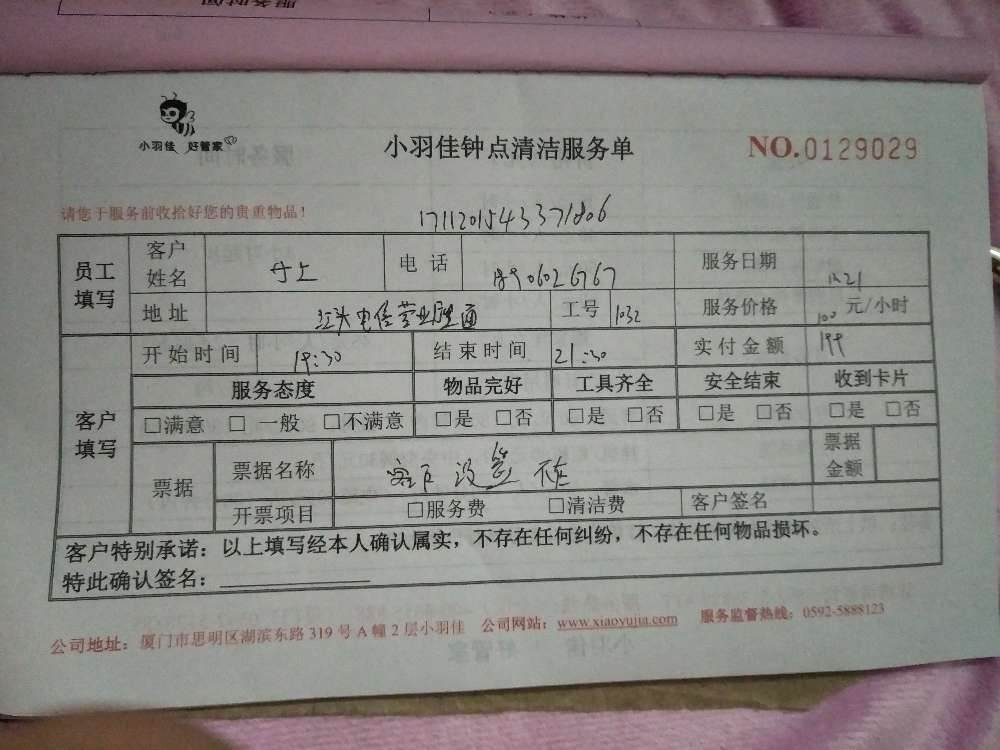 小羽佳 好管家
小羽佳钟点清洁服务单
NO.0129029
请您于服务前收拾好您的贵重物品！
员工填写 客户姓名 电话 服务日期
地址 江头电信营业厅 工号 1032 服务价格 100 元/小时
客户填写 开始时间 19:30 结束时间 21:30 实付金额 199
服务态度 物品完好 工具齐全 安全结束 收到卡片
□满意 □ 一般 □不满意 □是 □否 □是 □否 □是 □否 □是 □否
票据 票据名称 客户没 票据金额
开票项目 □服务费 □清洁费 客户签名
客户特别承诺：以上填写经本人确认属实，不存在任何纠纷，不存在任何物品损坏。
特此确认签名：
公司地址：厦门市思明区湖滨东路 319 号 A 幢 2 层小羽佳 公司网站：www.xiaoyujia.com 服务监督热线：0592-5888123